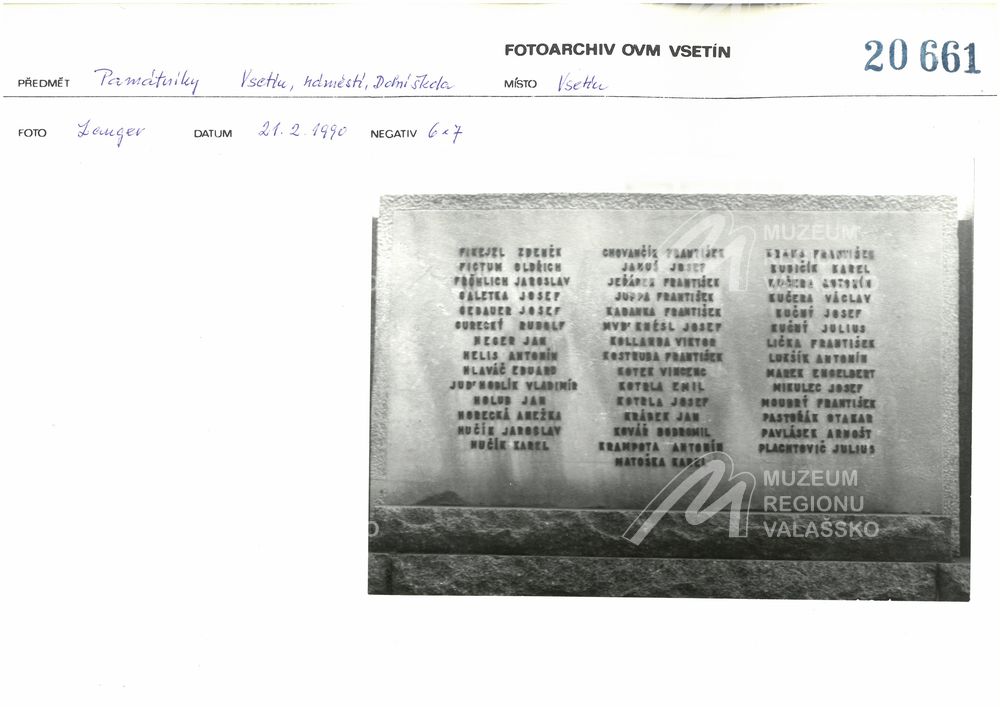 FOTOARCHIV OVM VSETÍN
20 661
PŘEDMĚT Památníky Vsetín, náměstí, Dolní škola MÍSTO Vsetín
FOTO Langer DATUM 21. 2. 1990 NEGATIV 6x7
FIKEJZL ZDENĚK
FICTUM OLDŘICH
FRÖHLICH JAROSLAV
GALETKA JOSEF
GEBAUER JOSEF
GURECKÝ RUDOLF
HEGER JAN
HELIS ANTONÍN
HLAVÁČ EDUARD
JUDr HODLÍK VLADIMÍR
HOLUB JAN
HORECKÁ ANEŽKA
HUČÍK JAROSLAV
HUČÍK KAREL
CHOVANČÍK FRANTIŠEK
JAKUŠ JOSEF
JEŘÁBEK FRANTIŠEK
JUPPA FRANTIŠEK
KABANKA FRANTIŠEK
MVDr KNÉSL JOSEF
KOLLANDA VIKTOR
KOSTRUBA FRANTIŠEK
KOTEK VINCENC
KOTRLA EMIL
KOTRLA JOSEF
KRÁBEK JAN
KOVÁŘ BOHROMIL
KRAMPOTA ANTONÍN
MATOŠKA KAREL
FRANTIŠEK
KUBIČÍK KAREL
KUČERA ANTONÍN
KUČERA VÁCLAV
KUČNÝ JOSEF
KUČNÝ JULIUS
LIČKA FRANTIŠEK
LUKŠÍK ANTONÍN
MAREK ENGELBERT
MIKULEC JOSEF
MOUDRÝ FRANTIŠEK
PASTOŘÁK OTAKAR
PAVLÁSEK ARNOŠT
PLACHTOVIČ JULIUS
MUZEUM
MUZEUM
REGIONU
VALAŠSKO